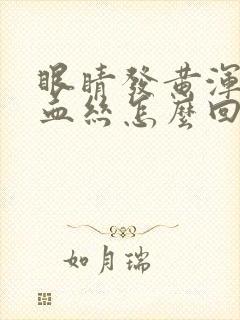 眼睛發黃渾
血絲怎麼回
如月瑞